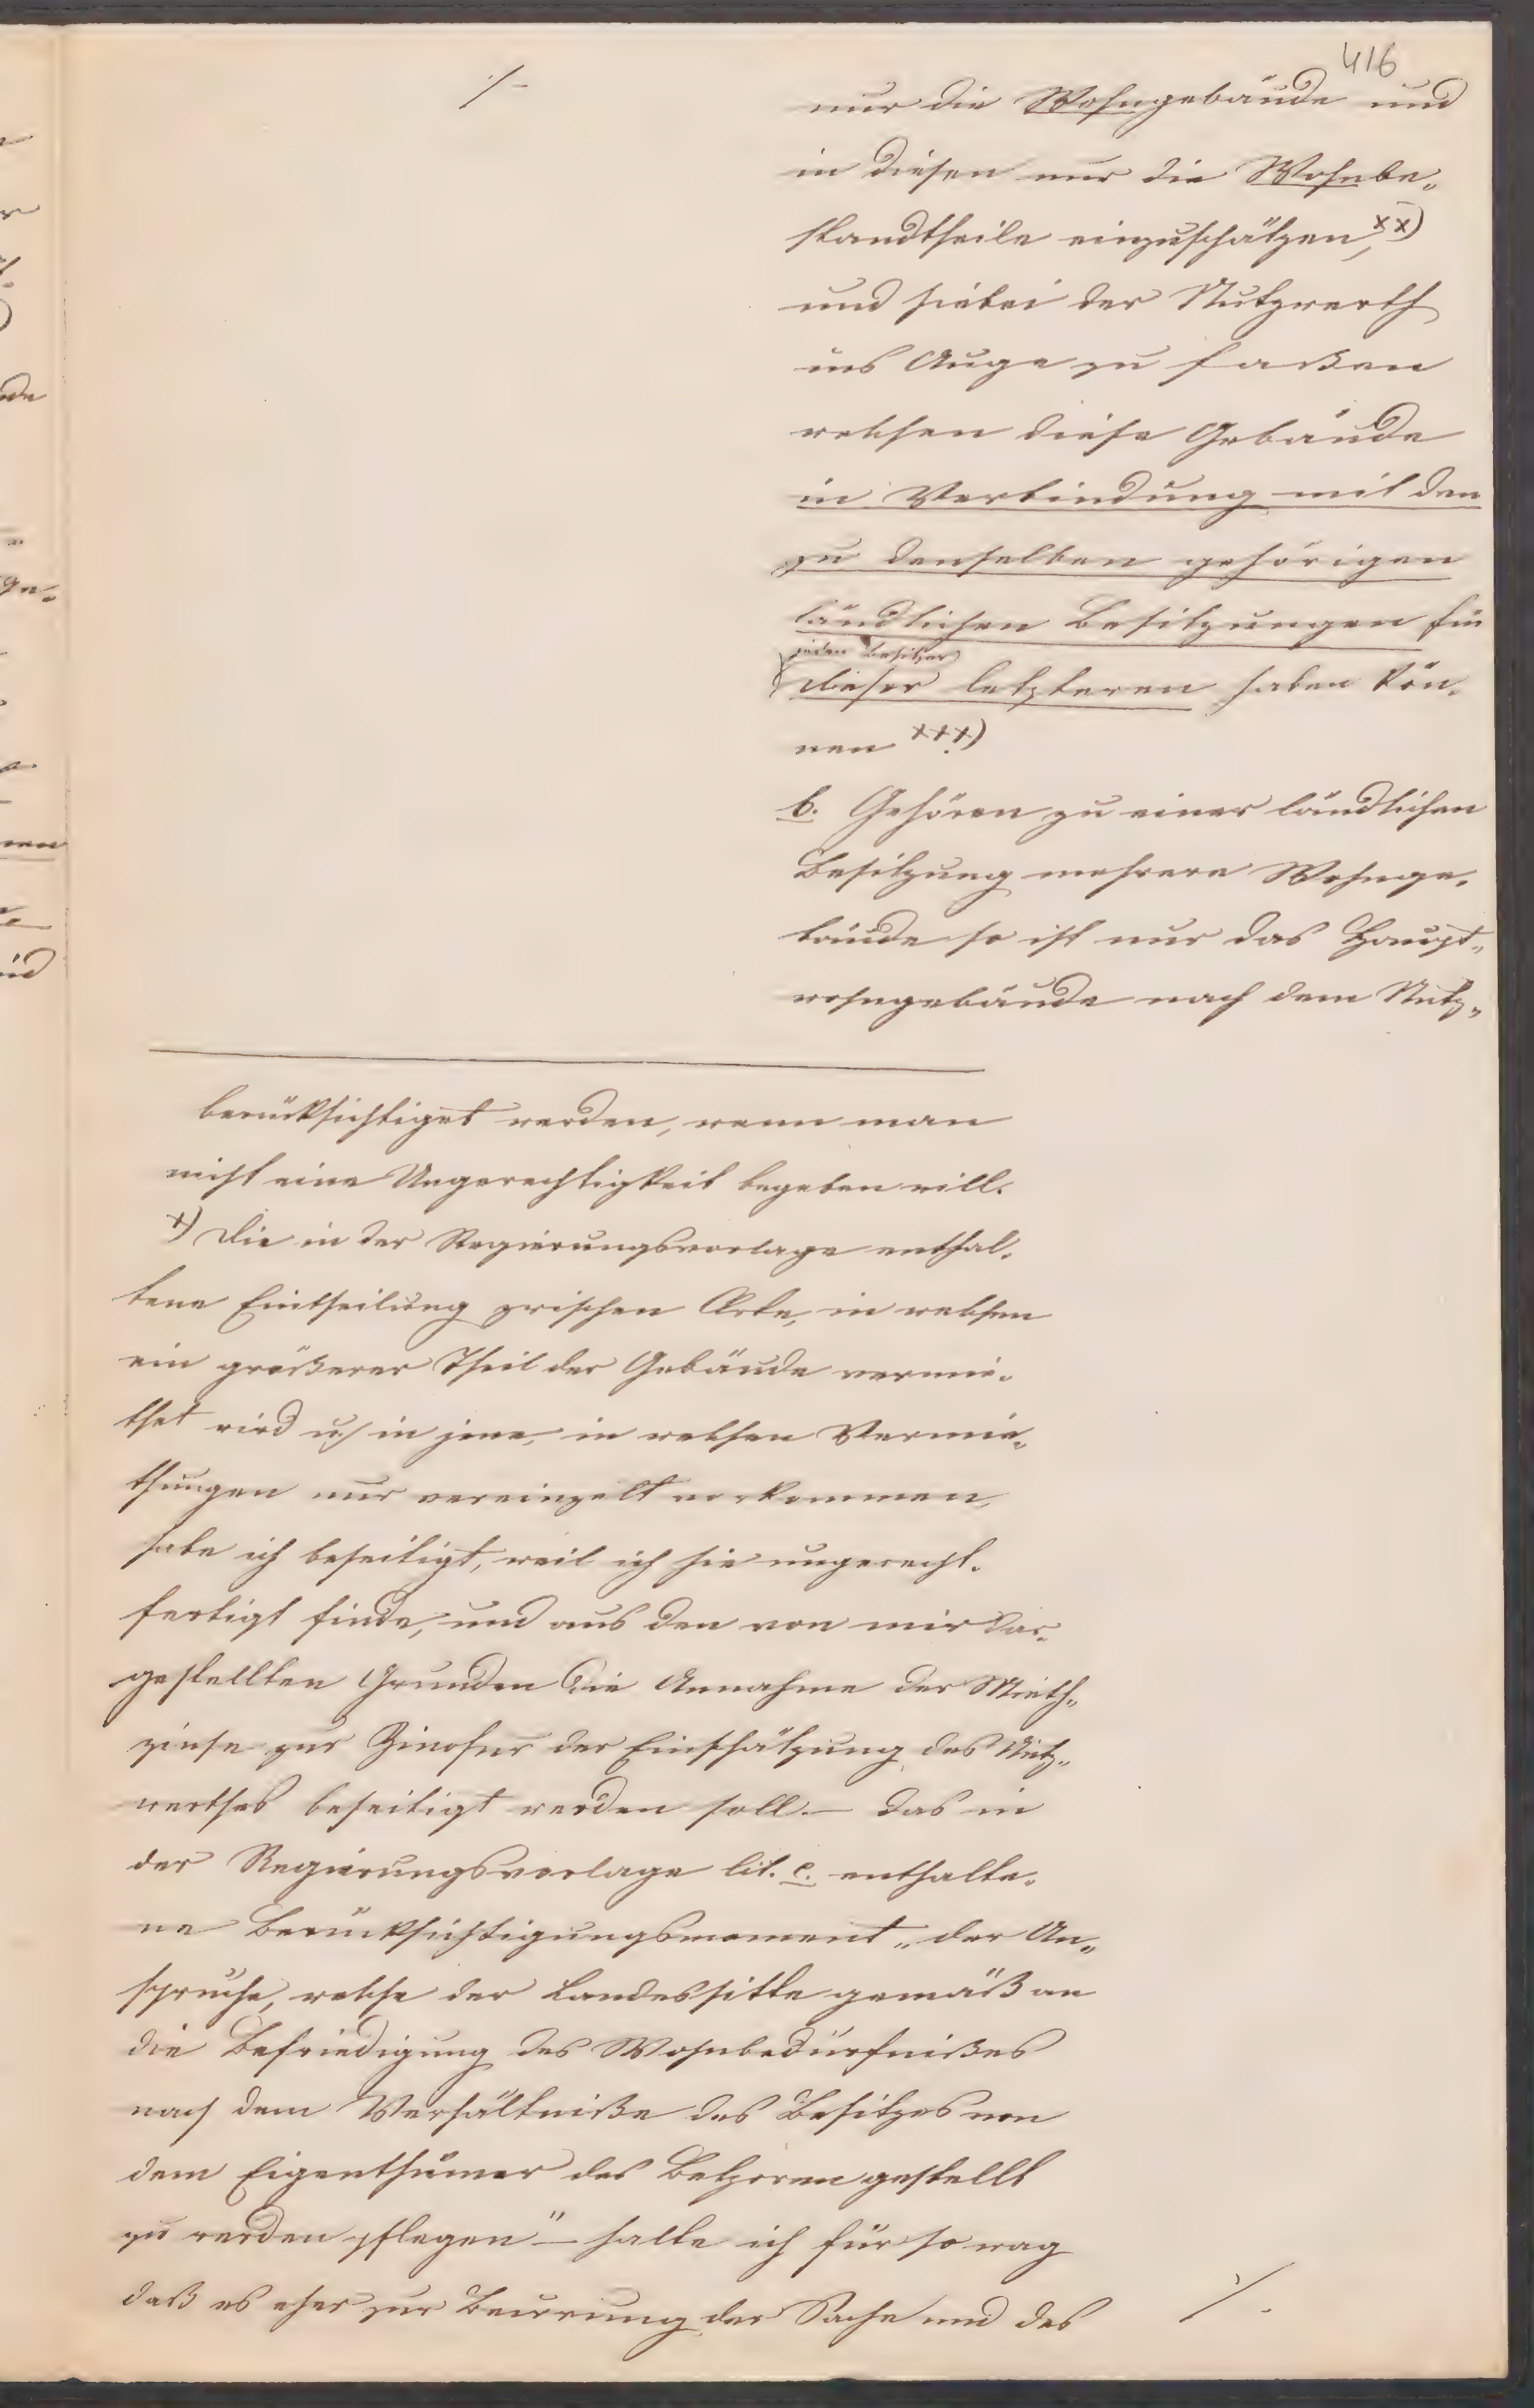 416
./.
nur die Wohngebäude und
in diesen nur die Wohnbe„
standtheile einzuschätzen, xx)
und hiebei der Nutzwerth
ins Auge zu faßen
welchen diese Gebäude
in Verbindung mit den
zu denselben gehörigen
ländlichen Besitzungen für
jeden Besitzer
dieser letzteren haben kön„
nen xxx)
b. Gehören zu einer ländlichen
Besitzung mehrere Wohnge„
bäude so ist nur das Haupt„
wohngebäude nach dem Nutz„
berücksichtiget werden, wenn man
nicht eine Ungerechtigkeit begehen will.
x) Die in der Regierungsvorlage enthal„
tene Eintheilung zwischen Orte, in welchen
ein größerer Theil der Gebäude vermie„
thet wird u/ in jene, in welchen Vermie„
thungen nur vereinzelt vorkommen,
habe ich beseitigt, weil ich sie ungerecht„
fertigt finde, und aus den von mir dar„
gestellten Grunden die Annahme der Mieth„
zinse zur der Einschätzung des Nutz„
werthes beseitigt werden soll. – Das in
der Regierungsvorlage lit. c. enthalte„
ne Berücksichtigungsmoment „der An„
sprüche, welche der Landessitte gemäß an
die Befriedigung des Wohnbedürfnißes
nach dem Verhältniße des Besitzes von
dem Eigenthümer des gestellt
zu werden pflegen" – halte ich für so vag
daß es eher zur Beirrung der Sache und des
./.